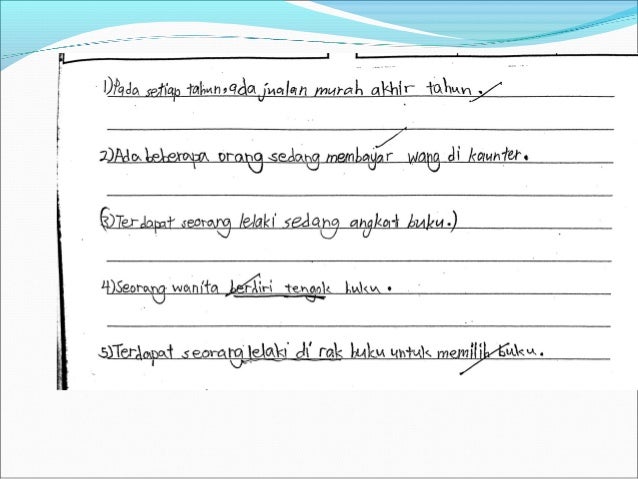 1) Pada setiap tahun, ada jualan murah akhir tahun.
2) Ada beberapa orang sedang membayar wang di kaunter.
(3) Terdapat seorang lelaki sedang angkat buku.)
4) Seorang wanita berdiri tengok buku.
5) Terdapat seorang lelaki di rak buku untuk memilih buku.